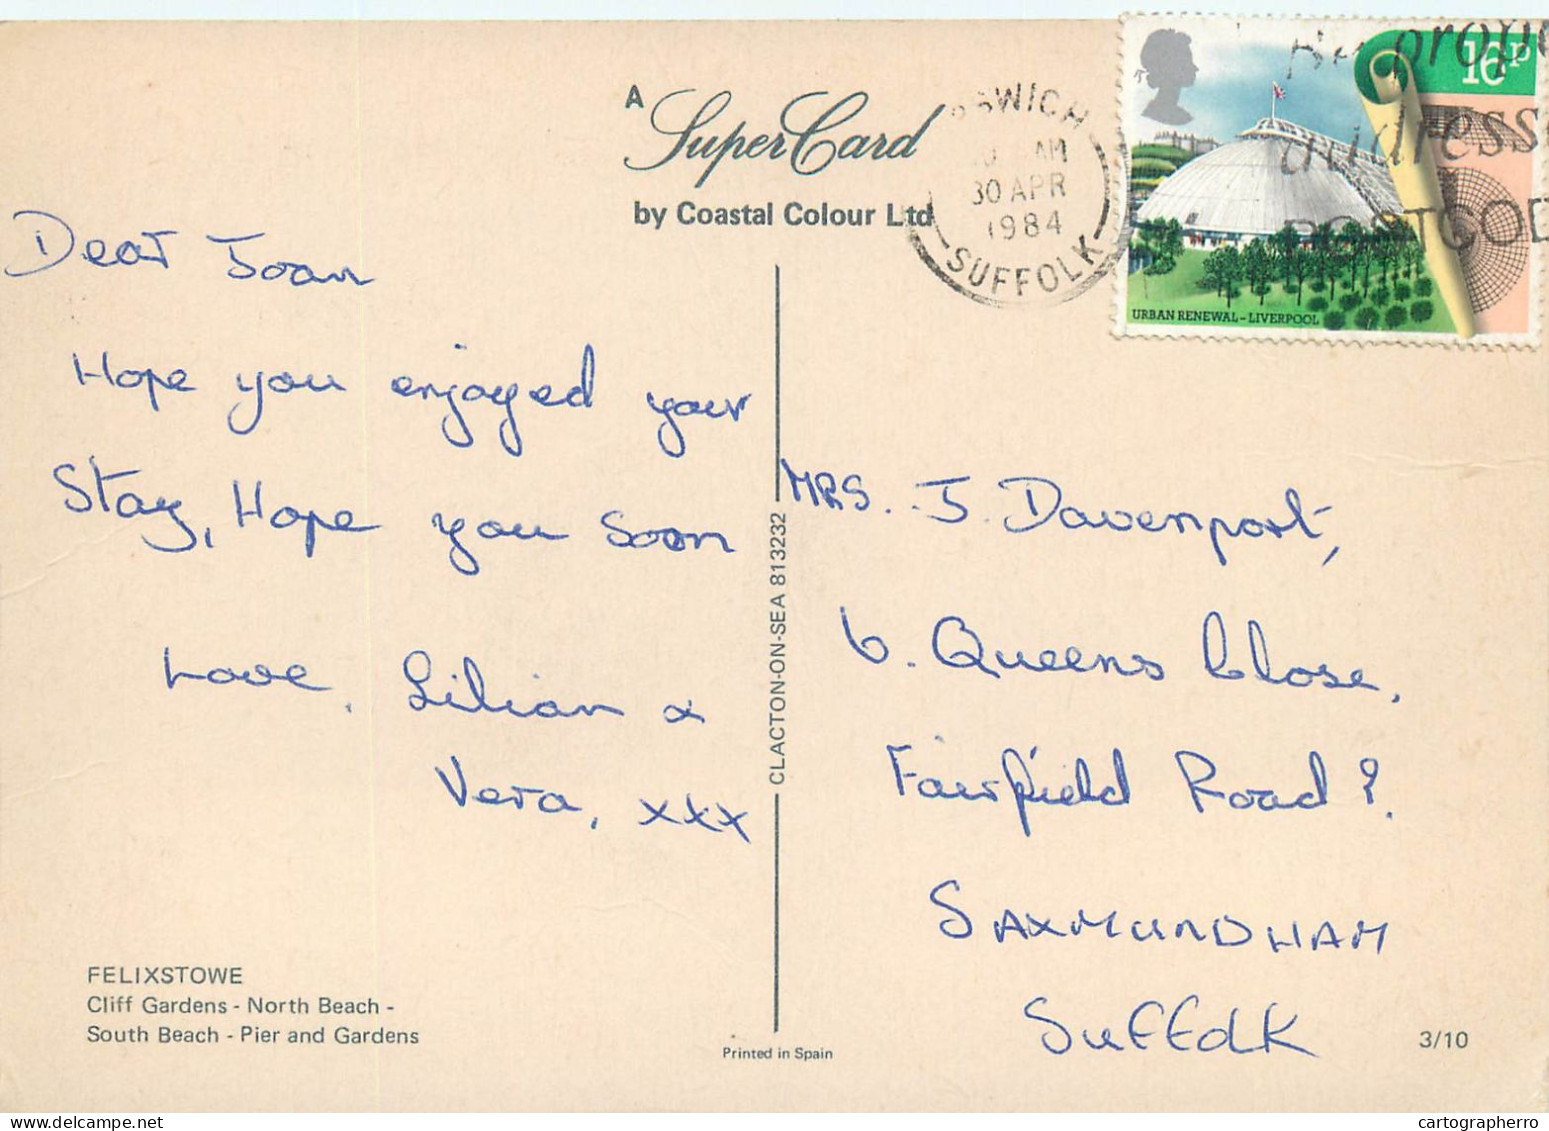 A
Super Card
by Coastal Colour Ltd
IPSWICH
AM
30 APR
1984
SUFFOLK
16P
URBAN RENEWAL-LIVERPOOL
addresse
POSTCODE
Dear Joan
Hope you enjoyed your
Stay, Hope you soon
Love, Lilian &
Vera, xxx
FELIXSTOWE
Cliff Gardens - North Beach -
South Beach - Pier and Gardens
CLACTON-ON-SEA 813232
Printed in Spain
MRS. J. Davenport,
6. Queens Close,
Fairfield Road?
SAXMUNDHAM
SUFFOLK
3/10
cartographerro